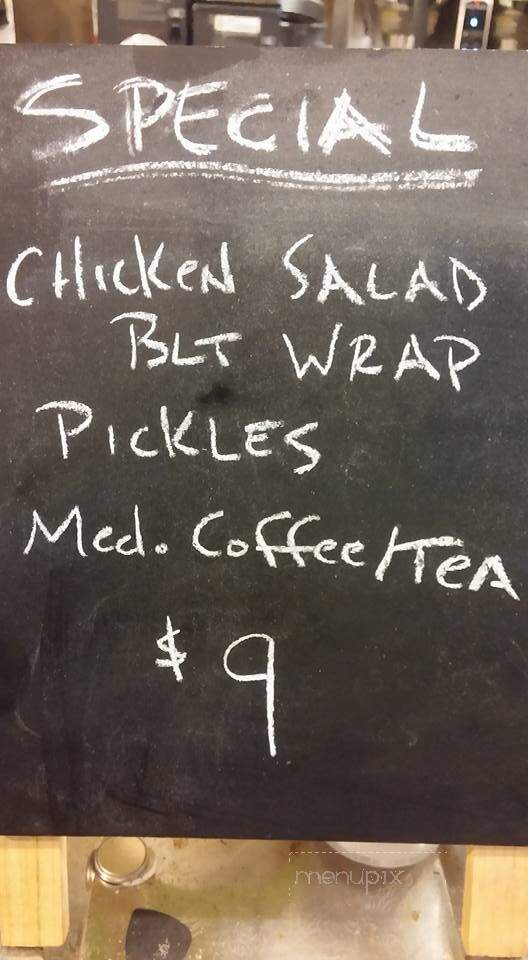 SPECIAL
CHicKeN SALAD
BLT WRAP
PICKLES
Med. Coffee/TeA
$9
menupix